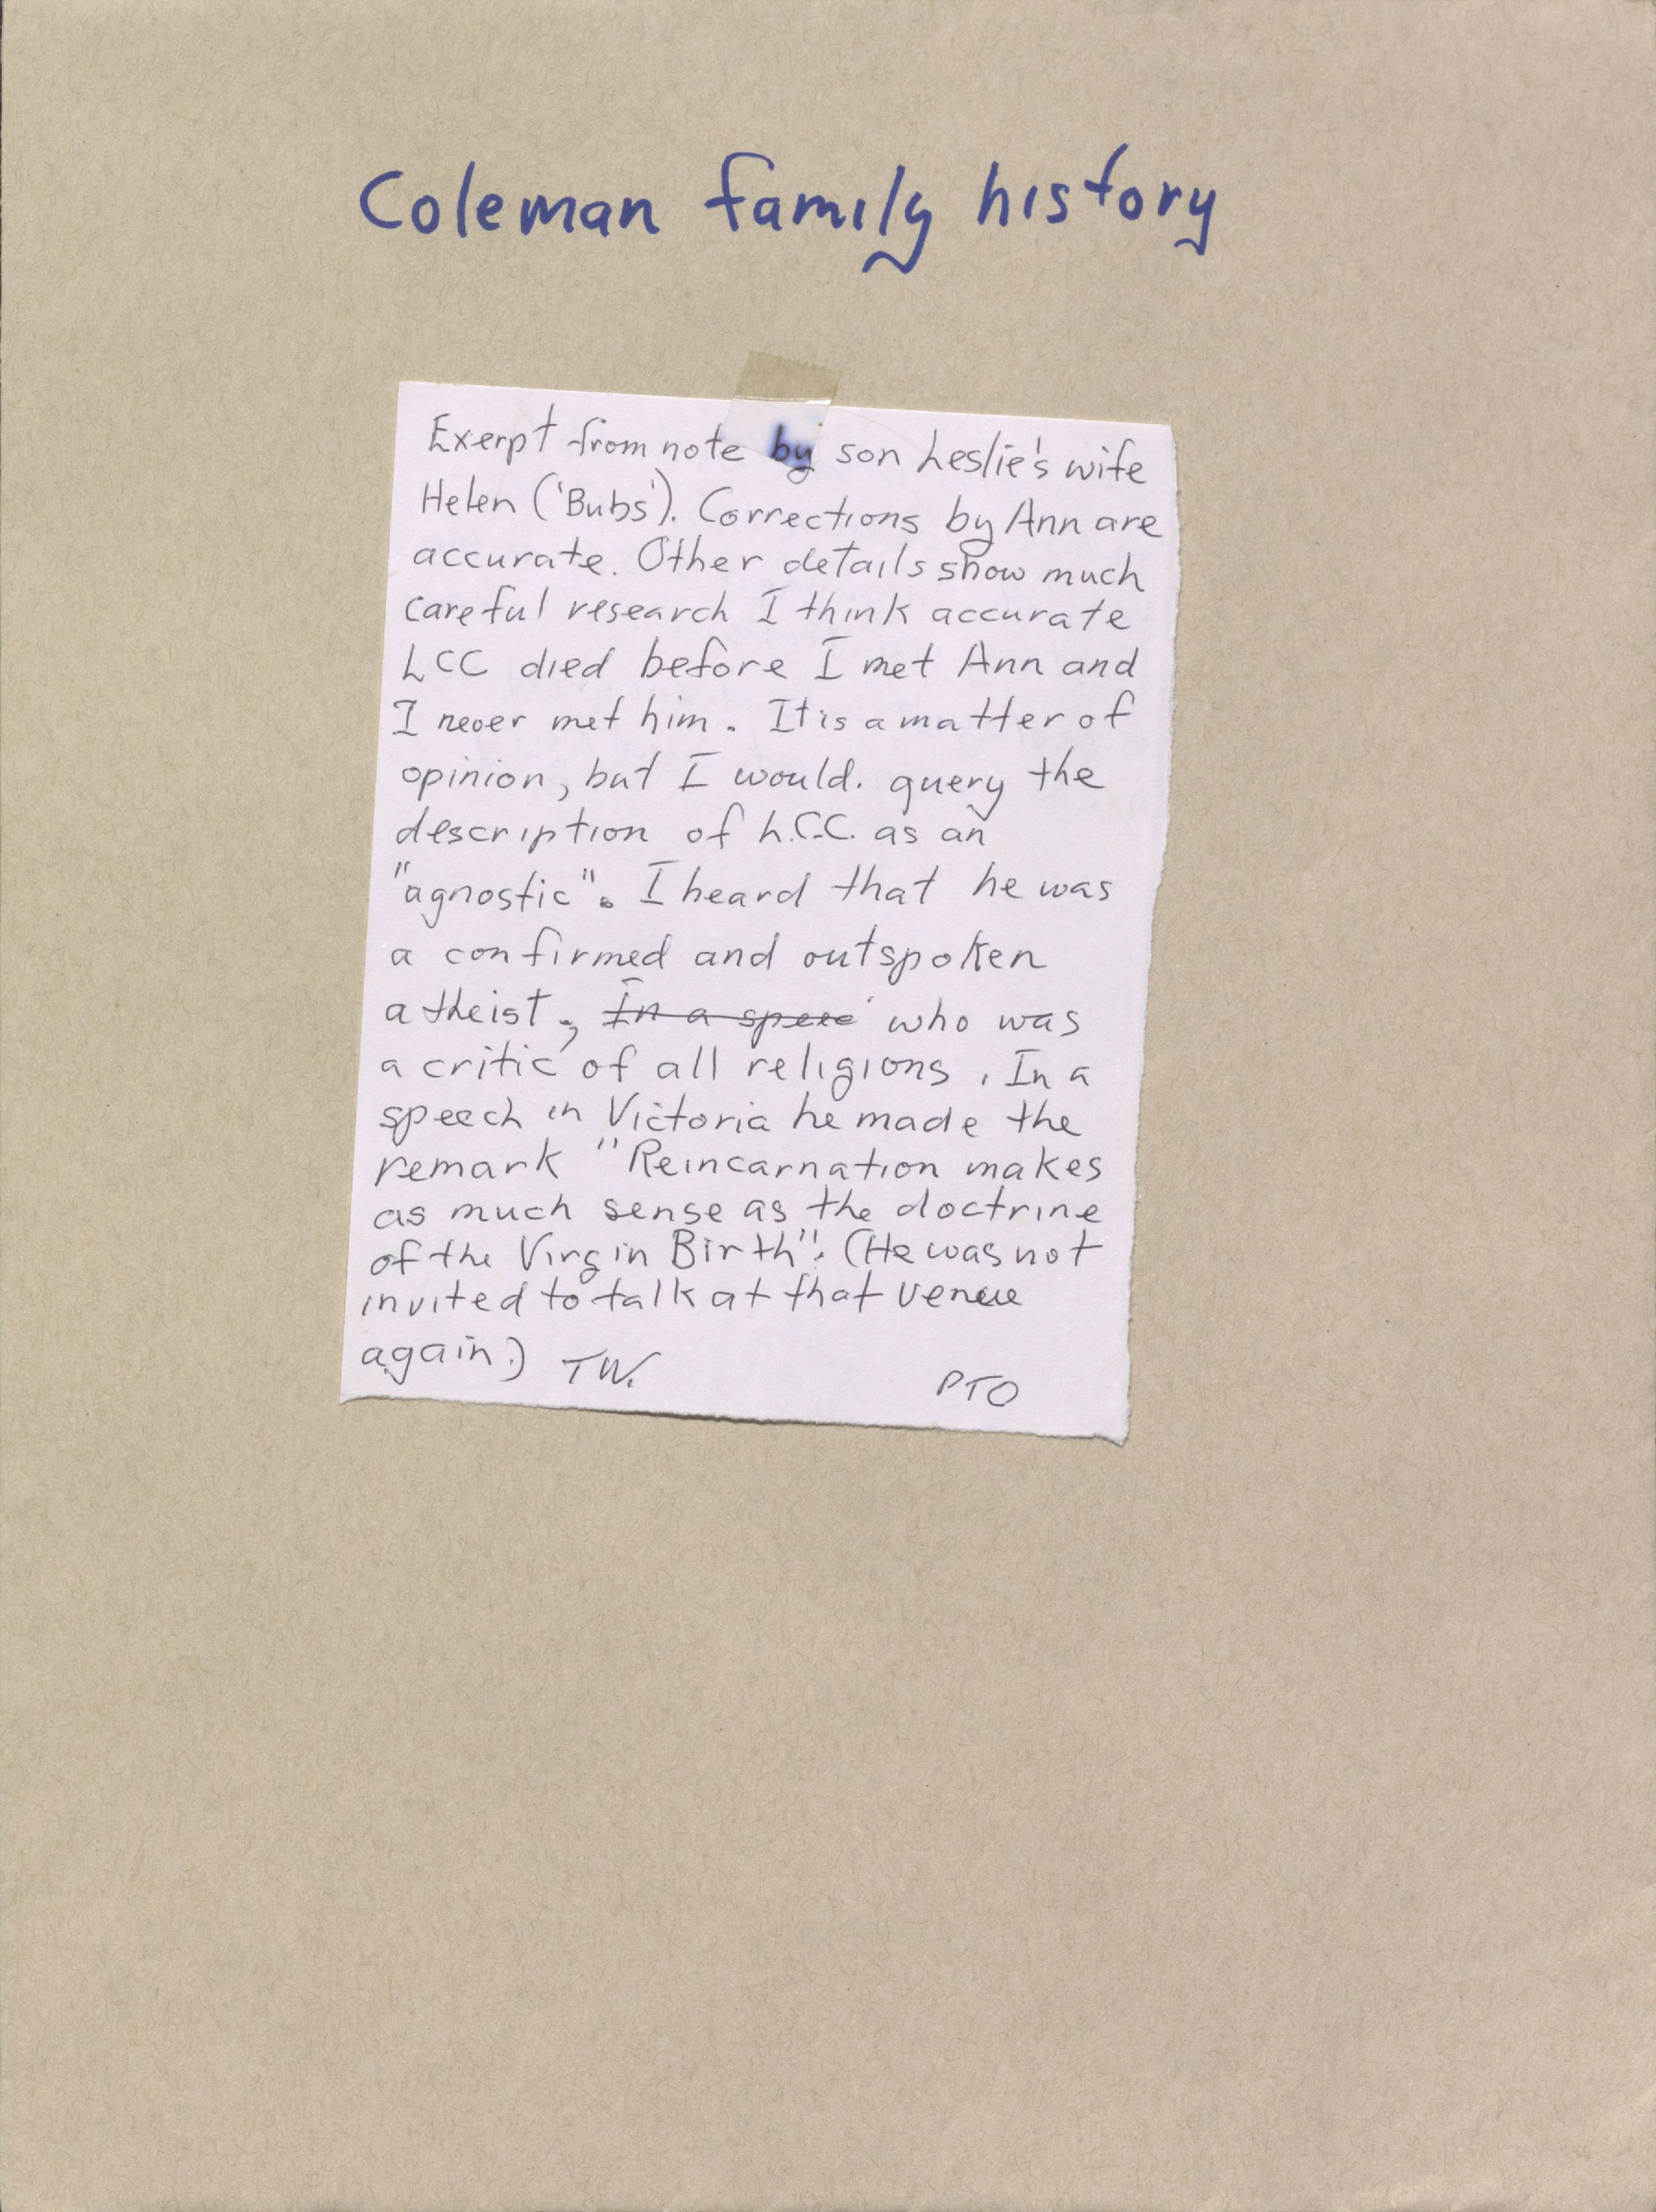 Coleman family history
Exerpt from note by son Leslie's wife
Helen ('Bubs'). Corrections by Ann are
accurate. Other details show much
careful research I think accurate
LCC died before I met Ann and
I never met him. It is a matter of
opinion, but I would. query the
description of L.C.C. as an
"agnostic". I heard that he was
a confirmed and outspoken
atheist., In a spee who was
a critic of all religions. In a
speech in Victoria he made the
remark "Reincarnation makes
as much sense as the doctrine
of the Virgin Birth". (He was not
invited to talk at that venue
again.) TW.
PTO